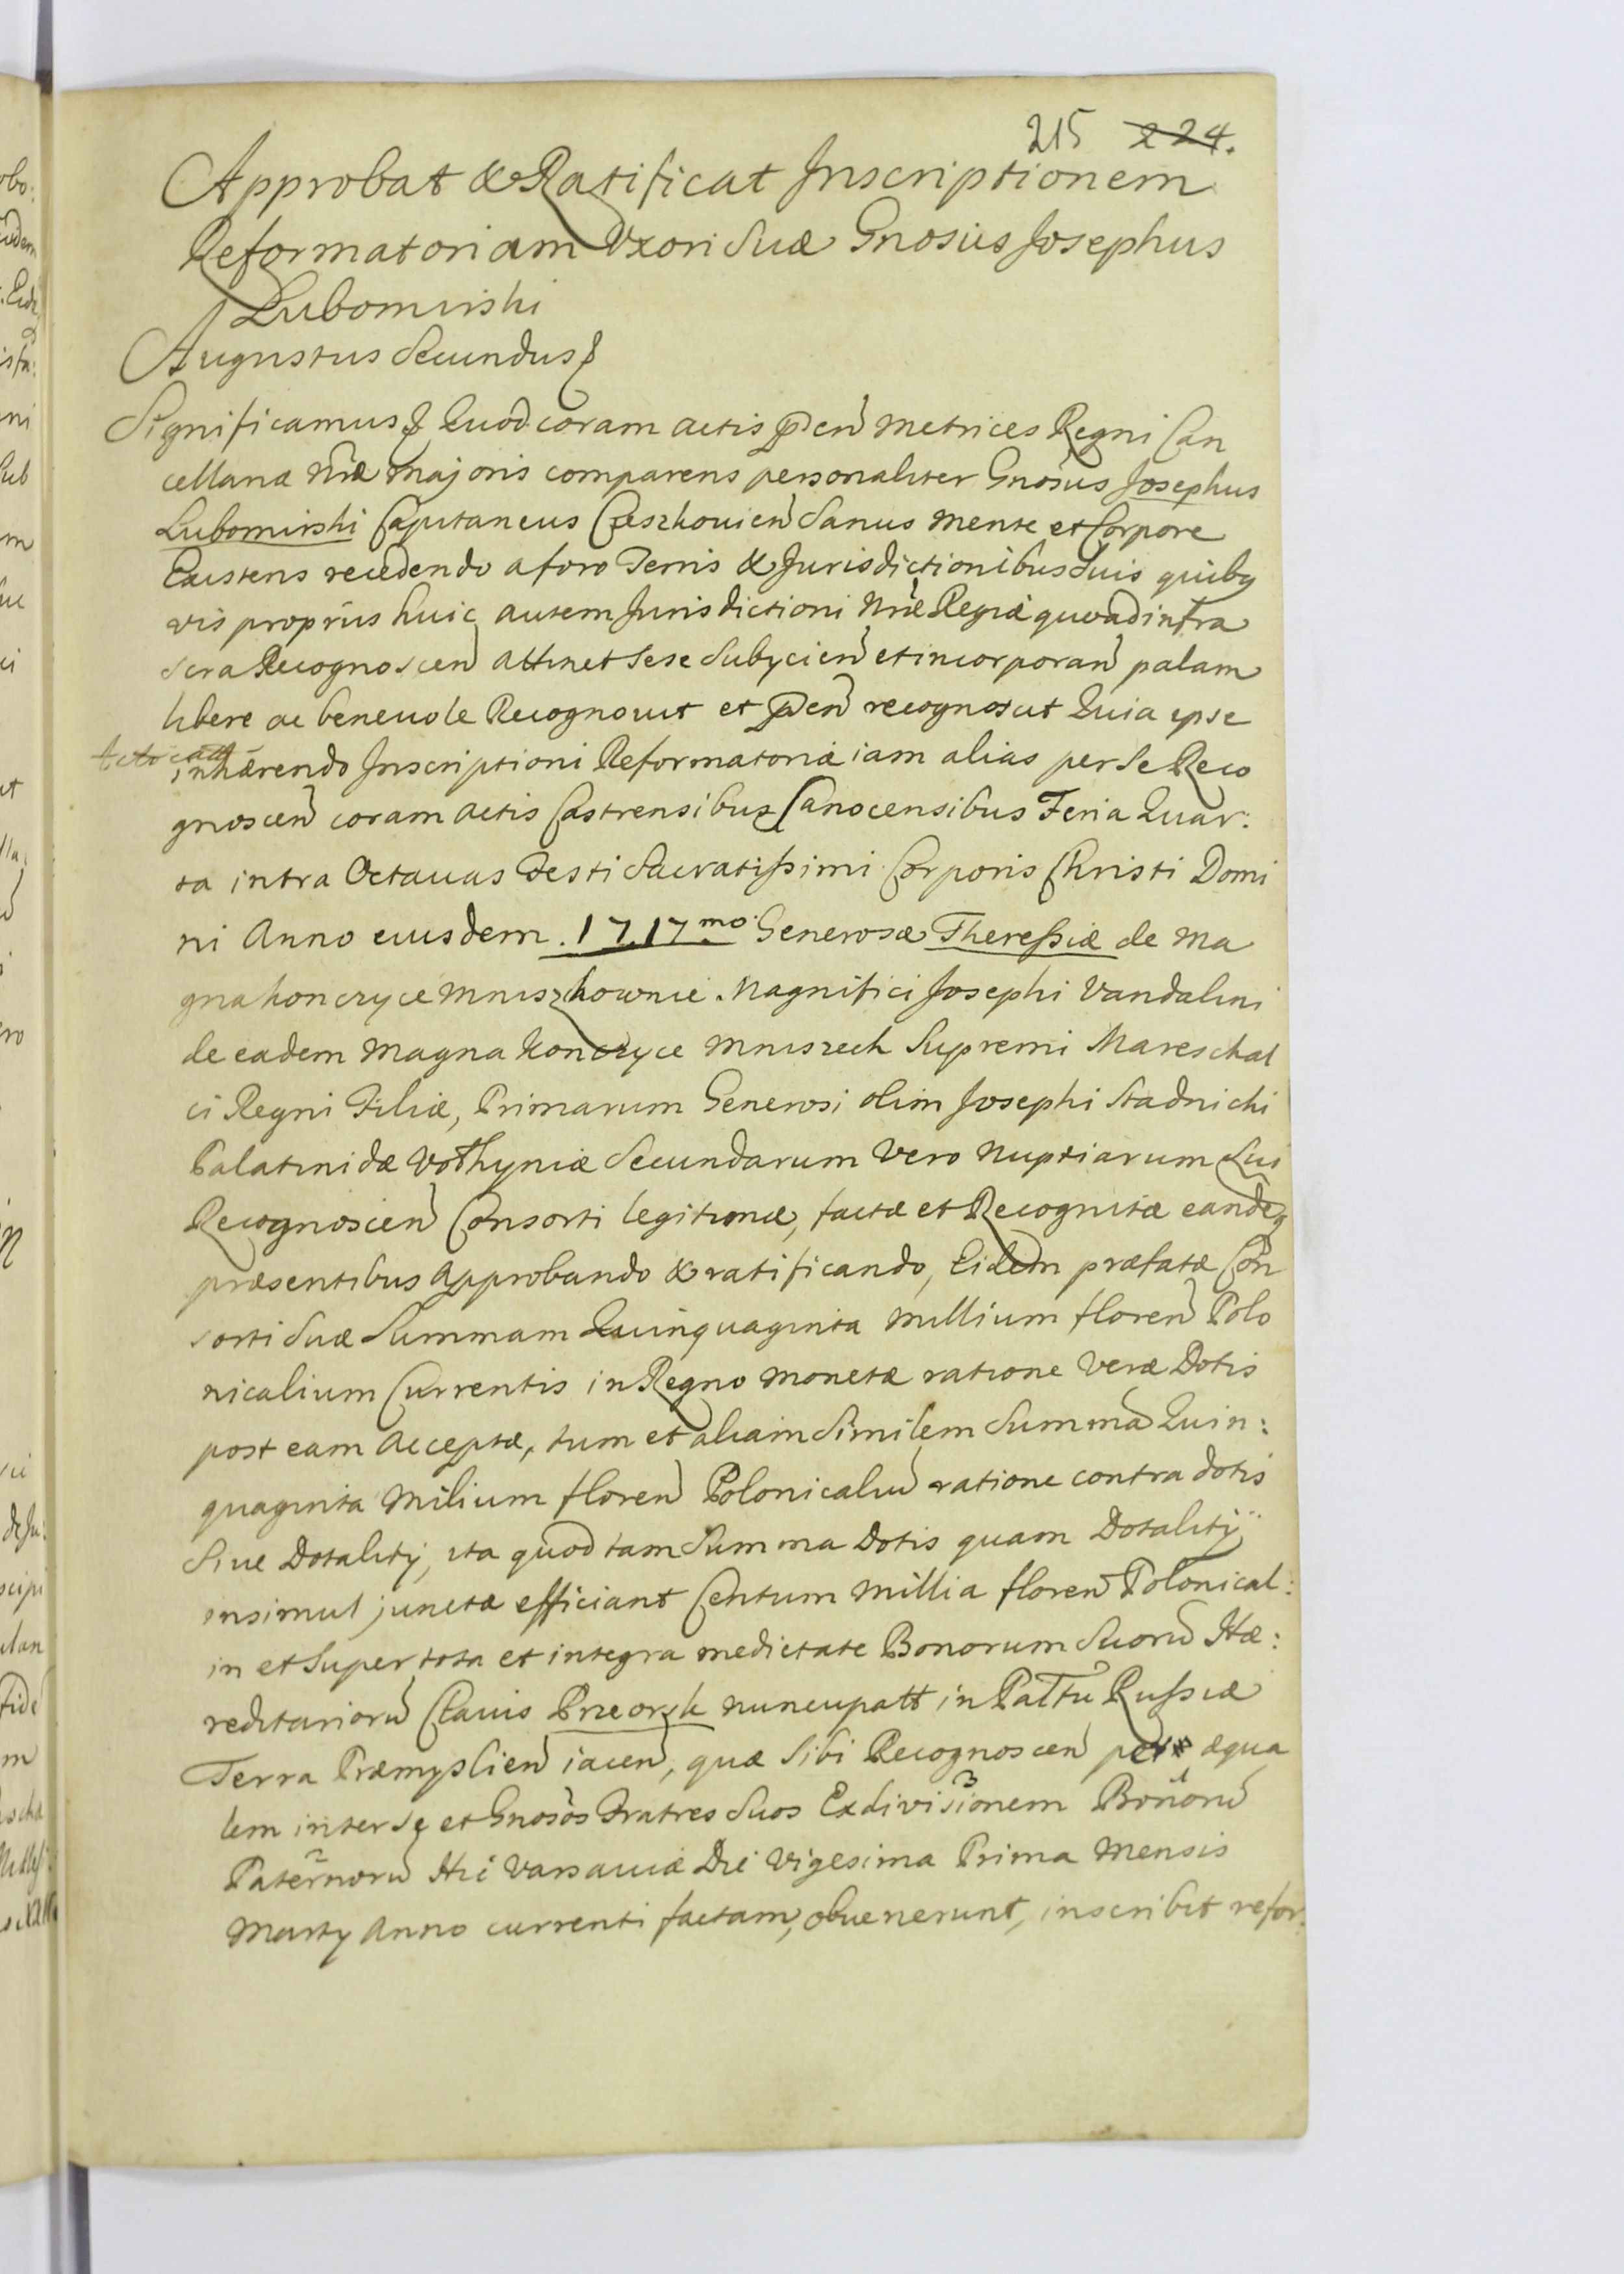 215 224.
Approbat & Ratificat Inscriptionem
Reformatoriam Uxori Suæ Gnosus Josephus
Lubomirski
Augustus Secundus &
Significamus & Quod coram actis pñen Metrices Regni Can
cellariæ Nr̃æ Majoris comparens personaliter Gnosus Josephus
Lubomirski Capitaneus Czeszkovien Sanus Mente et Corpore
Existens recedendo a foro Terris & Jurisdictionibus Suis quibq
vis proprijs huic autem Jurisdictioni Nr̃æ Regiæ quoad infra
scra Recognoscen attinet sese Subijcien et incorporan palam
libere ac benevole Recognovit et pñen recognoscit Quia ipse
inhærendo Inscriptioni Reformatoriæ iam alias per se Reco
gnoscen coram actis Castrensibus Sanocensibus Feria Quar:
ta intra Octavas Festi Sacratissimi Corporis Christi Domi
ni Anno eiusdem .1717mo Generosæ Theressiæ de Ma
gna Konczyce Mniszkownie. Magnifici Josephi Vandalini
de eadem Magna Konczyce Mniszech Supremi Mareschal
ci Regni Filiæ, Primarum Generosi olim Josephi Stadnicki
Palatinidæ Wolhyniæ Secundarum Vero Nuptiarum Sui
Recognoscen Consorti legitimæ, factæ et Recognitæ eandeq
præsentibus Approbando & ratificando, Eidem præfatæ Con
sorti Suæ Summam Quinquaginta Millium floren Polo
nicalium Currentis in Regno Monetæ ratione Veræ Dotis
post eam Acceptæ, tum et aliam Similem Summã Quin:
quaginta Milium floren Polonicaliũ ratione contra dotis
Sive Dotalitij, ita quod tam Summa Dotis quam Dotalitij
insimul junctæ efficiant Centum Millia floren Polonical:
in et Super tota et integra medietate Bonorum Suorũ Hæ:
reditariorũ Clavis Przeorsk nuncupatt in Pal̃tu Russiæ
Terra Præmyslien iacen, quæ Sibi Recognoscen per æqua
lem inter se et Gnosos Fratres Suos Exdivisionem Bonorũ
Paternorũ Hic Varsaviæ Die Vigesima Prima Mensis
Martij Anno currenti factam, obvenerunt, inscribit refor